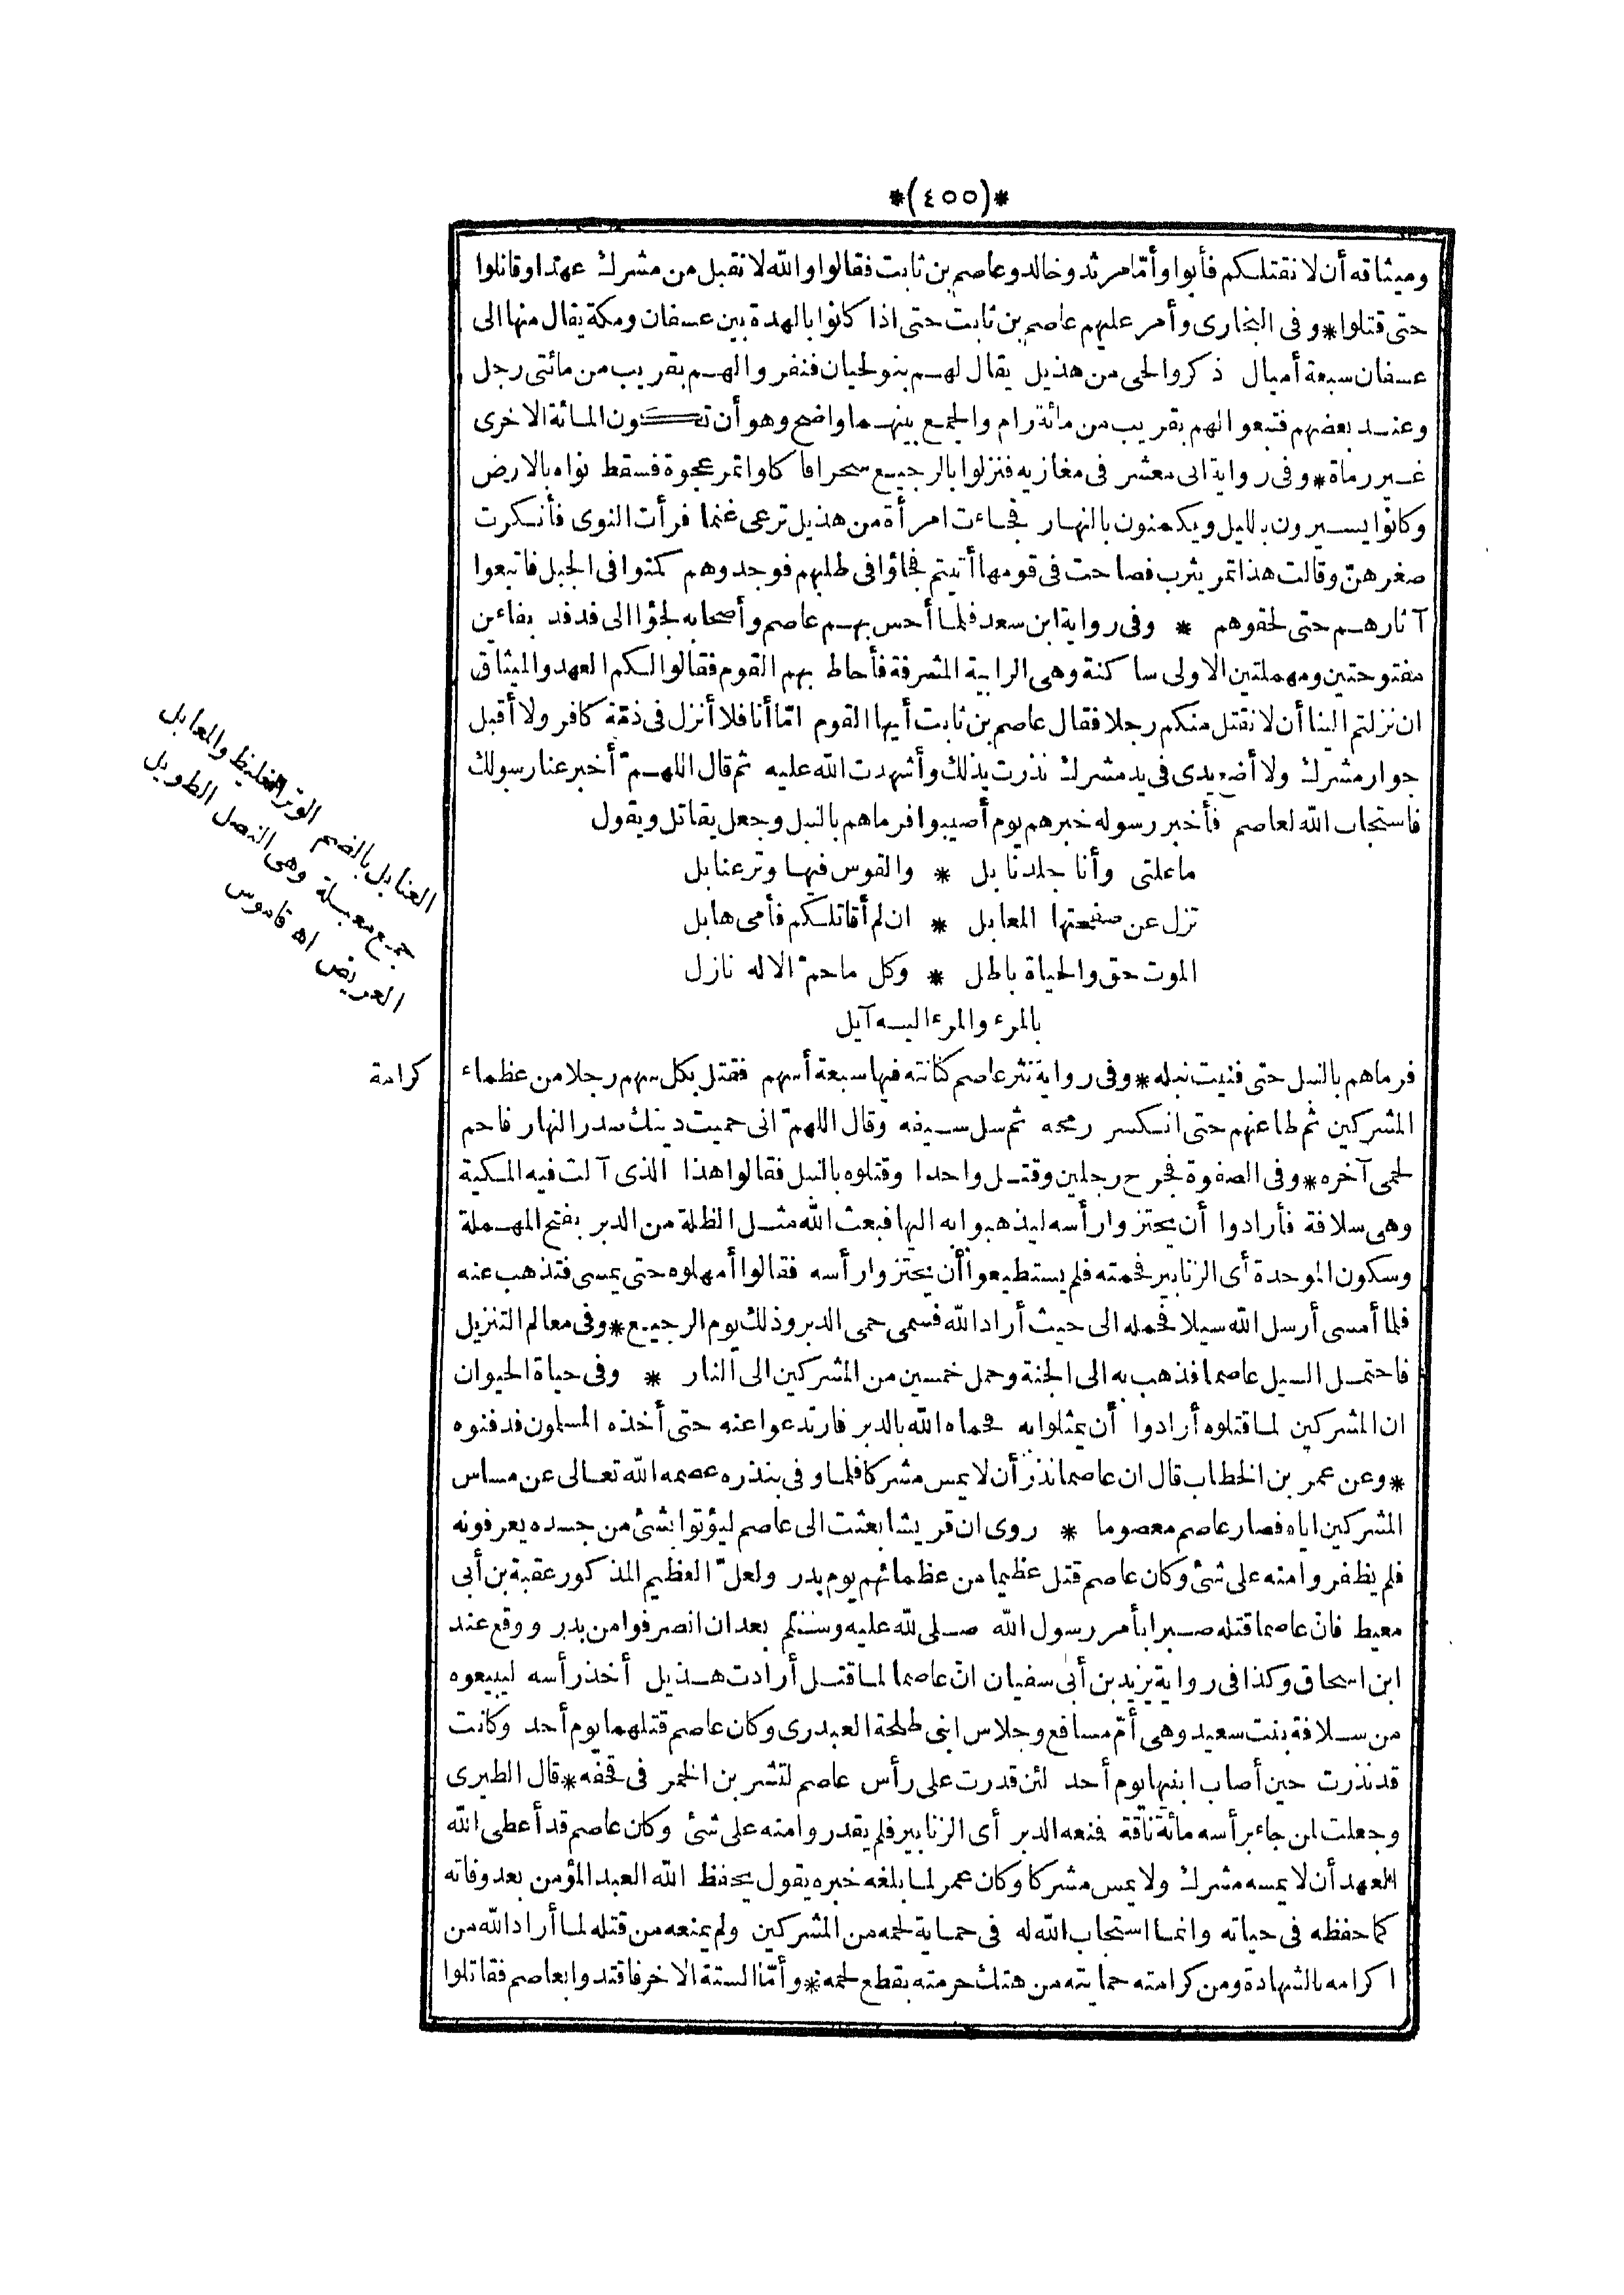 *(٤٥٥)*
وميثاقه أن لا نقتلكم فأبوا وأمّا مرثد وخالد وعاصم بن ثابت فقالوا والله لا نقبل من مشرك عهدا وقاتلوا
حتى قتلوا * وفى البخارى وأمر عليهم عاصم بن ثابت حتى اذا كانوا بالهدة بين عسفان ومكة يقال منها الى
عسفان سبعة أميال ذكروا لحى من هذيل يقال لهم بنو لحيان فنفروا لهم بقريب من مائتى رجل
وعند بعضهم فتبعوا لهم بقريب من مائة رام والجمع بينهما واضح وهو أن تكون المائة الاخرى
غير رماة * وفى رواية ابى معشر فى مغازيه فنزلوا بالرجيع سحرا فأكلوا تمر عجوة فسقط نواه بالارض
وكانوا يسيرون بالليل ويكمنون بالنهار فجاءت امرأة من هذيل ترعى غنما فرأت النوى فأنكرت
صغرهنّ وقالت هذا تمر يثرب فصاحت فى قومها أتيتم فجاؤا فى طلبهم فوجدوهم كمنوا فى الجبل فاتبعوا
آثارهم حتى لحقوهم * وفى رواية ابن سعد فلما أحس بهم عاصم وأصحابه لجؤا الى فدفد بفاءين
مفتوحتين ومهملتين الاولى ساكنة وهى الرابية المشرفة فأحاط بهم القوم فقالوا لكم العهد والميثاق
ان نزلتم الينا أن لا نقتل منكم رجلا فقال عاصم بن ثابت أيها القوم امّا أنا فلا أنزل فى ذمّة كافر ولا أقبل
جوار مشرك ولا أضع يدى فى يد مشرك نذرت بذلك وأشهدت الله عليه ثم قال اللهمّ أخبر عنا رسولك
فاستجاب الله لعاصم فأخبر رسوله خبرهم يوم أصيبوا فرماهم بالنبل وجعل يقاتل ويقول
ما علتى وأنا جلد نابل * والقوس فيها وتر عنابل
تزل عن صفحتها المعابل * ان لم أقاتلكم فأمى هابل
الموت حق والحياة باطل * وكل ما حمّ الاله نازل
بالمرء والمرء اليه آيل
فرماهم بالنبل حتى فنيت نبله * وفى رواية نثر عاصم كنانته فيها سبعة أسهم فقتل بكل سهم رجلا من عظماء
المشركين ثم طاعنهم حتى انكسر رمحه ثم سل سيفه وقال اللهمّ انى حميت دينك صدر النهار فاحم
لحمى آخره * وفى الصفوة فجرح رجلين وقتل واحدا وقتلوه بالنبل فقالوا هذا الذى آلت فيه المكية
وهى سلافة فأرادوا أن يحتزوا رأسه ليذهبوا به اليها فبعث الله مثل الظلة من الدبر بفتح المهملة
وسكون الموحدة أى الزنابير فحمته فلم يستطيعوا أن يحتزوا رأسه فقالوا أمهلوه حتى يمسى فتذهب عنه
فلما أمسى أرسل الله سيلا فحمله الى حيث أراد الله فسمى حمى الدبر وذلك يوم الرجيع * وفى معالم التنزيل
فاحتمل السيل عاصما فذهب به الى الجنة وحمل خمسين من المشركين الى النار * وفى حياة الحيوان
ان المشركين لما قتلوه أرادوا أن يمثلوا به فحماه الله بالدبر فارتدعوا عنه حتى أخذه المسلمون فدفنوه
* وعن عمر بن الخطاب قال ان عاصما نذر أن لا يمس مشركا فلما وفى بنذره عصمه الله تعالى عن مساس
المشركين اياه فصار عاصم معصوما * روى ان قريشا بعثت الى عاصم ليؤتوا بشئ من جسده يعرفونه
فلم يظفروا منه على شئ وكان عاصم قتل عظيما من عظمائهم يوم بدر ولعلّ العظيم المذكور عقبة بن أبى
معيط فانّ عاصما قتله صبرا بأمر رسول الله صلى الله عليه وسلم بعد ان انصرفوا من بدر ووقع عند
ابن اسحاق وكذا فى رواية يزيد بن أبى سفيان انّ عاصما لما قتل أرادت هذيل أخذ رأسه ليبيعوه
من سلافة بنت سعيد وهى أمّ مسافع وجلاس ابنى طلحة العبدرى وكان عاصم قتلهما يوم أحد وكانت
قد نذرت حين أصاب ابنيها يوم أحد لئن قدرت على رأس عاصم لتشربن الخمر فى قحفه * قال الطبرى
وجعلت لمن جاء برأسه مائة ناقة فمنعه الدبر أى الزنابير فلم يقدروا منه على شئ وكان عاصم قد أعطى الله
العهد أن لا يمسه مشرك ولا يمس مشركا وكان عمر لما بلغه خبره يقول يحفظ الله العبد المؤمن بعد وفاته
كما حفظه فى حياته وانما استجاب الله له فى حماية لحمه من المشركين ولم يمنعه من قتله لما أراد الله من
اكرامه بالشهادة ومن كرامته حمايته من هتك حرمته بقطع لحمه * وأمّا الستة الاخر فاقتدوا بعاصم فقاتلوا
العنابل بالضم الوتر الغليظ والمعابل
جمع معبلة وهى النصل الطويل
العريض اه قاموس
كرامة